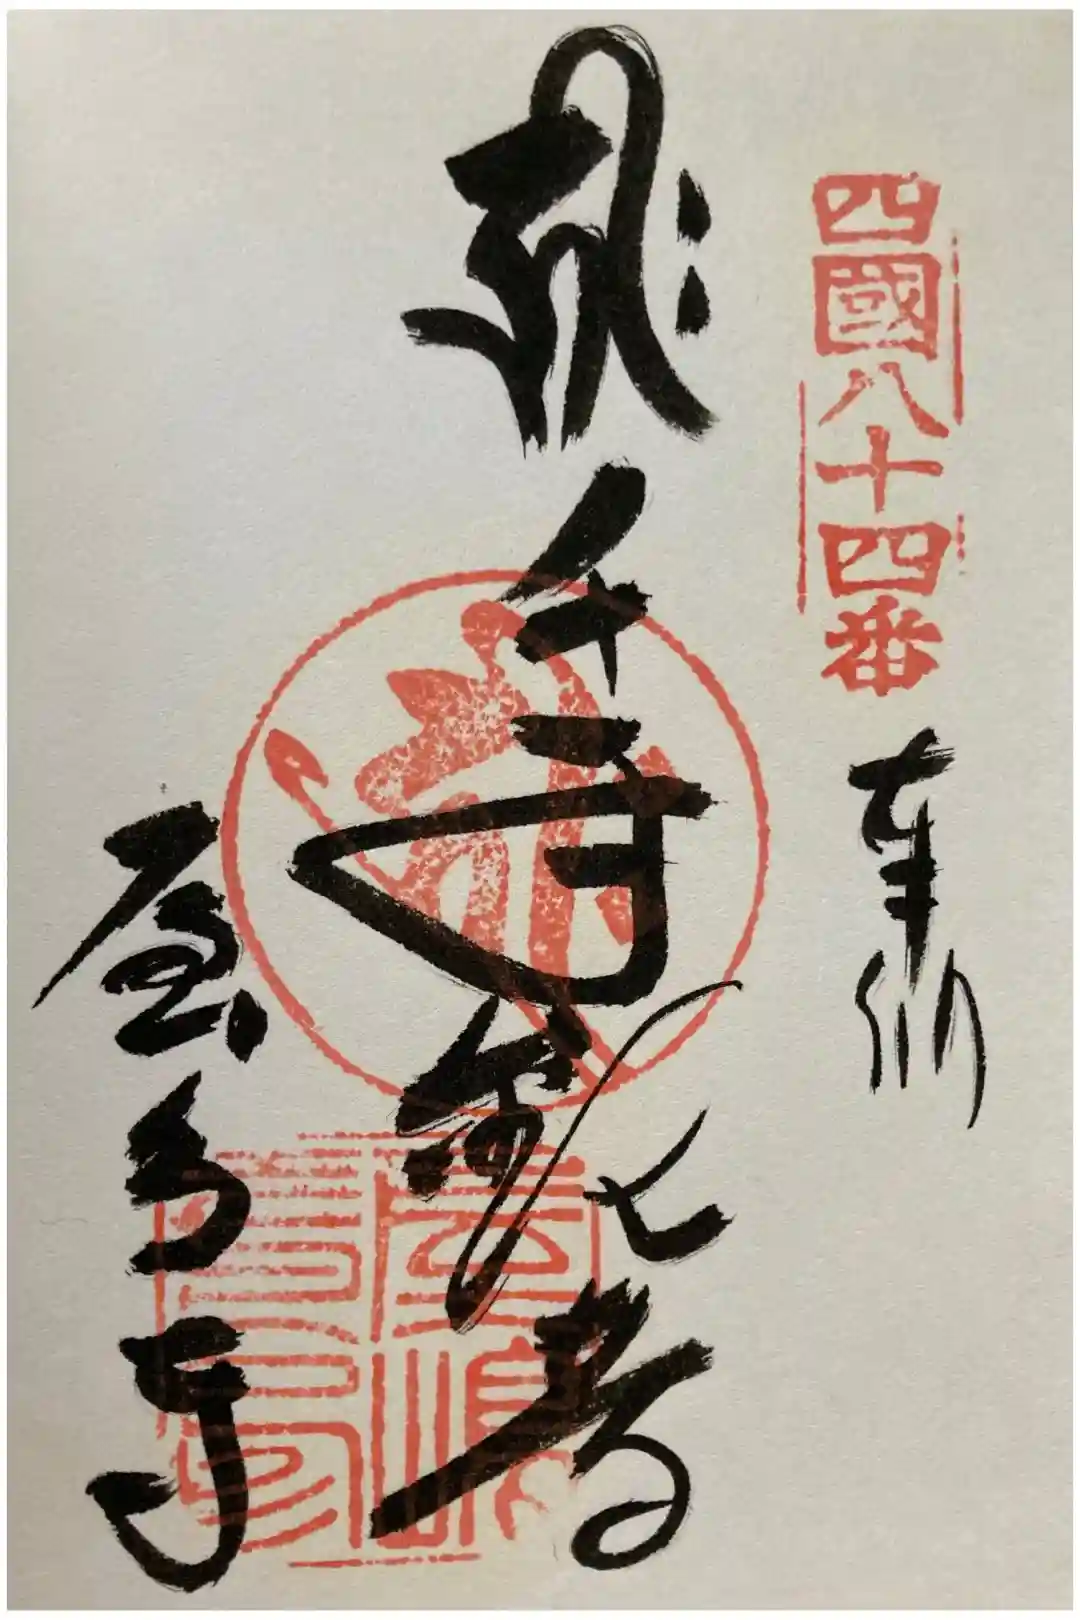 四國八十四番
奉納
ह्रीः千手観世音
屋島寺